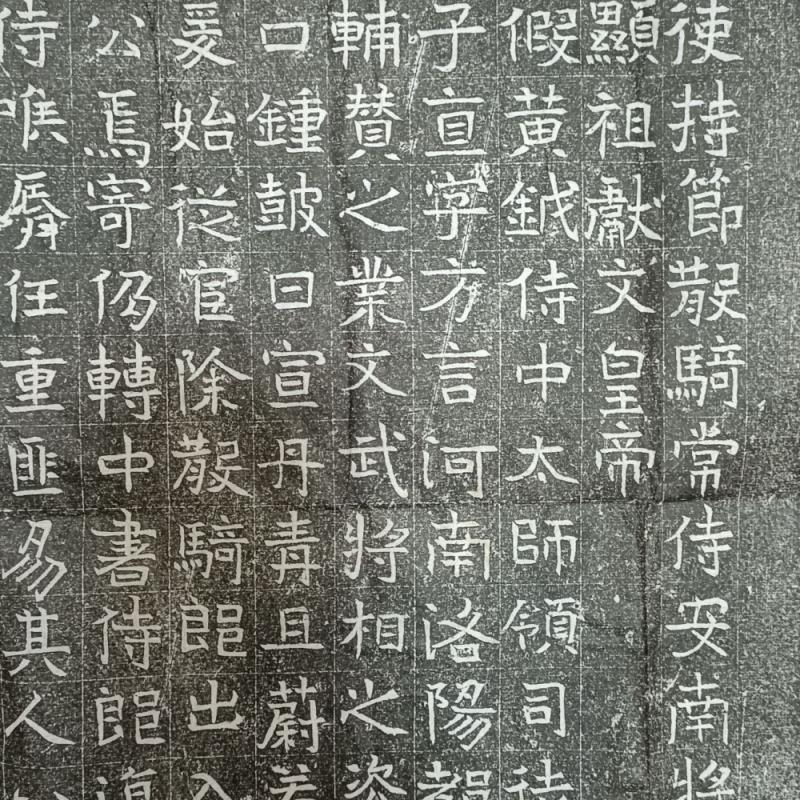 使持節散騎常侍安南將
顯祖獻文皇帝
假黃鉞侍中太師領司徒
子亶字方言河南洛陽都
輔贊之業文武將相之姿
口鍾鼓曰宣丹青旦蔚若
爰始從官除散騎郎出入
公焉寄仍轉中書侍郎
侍唯膺任重匪易其人